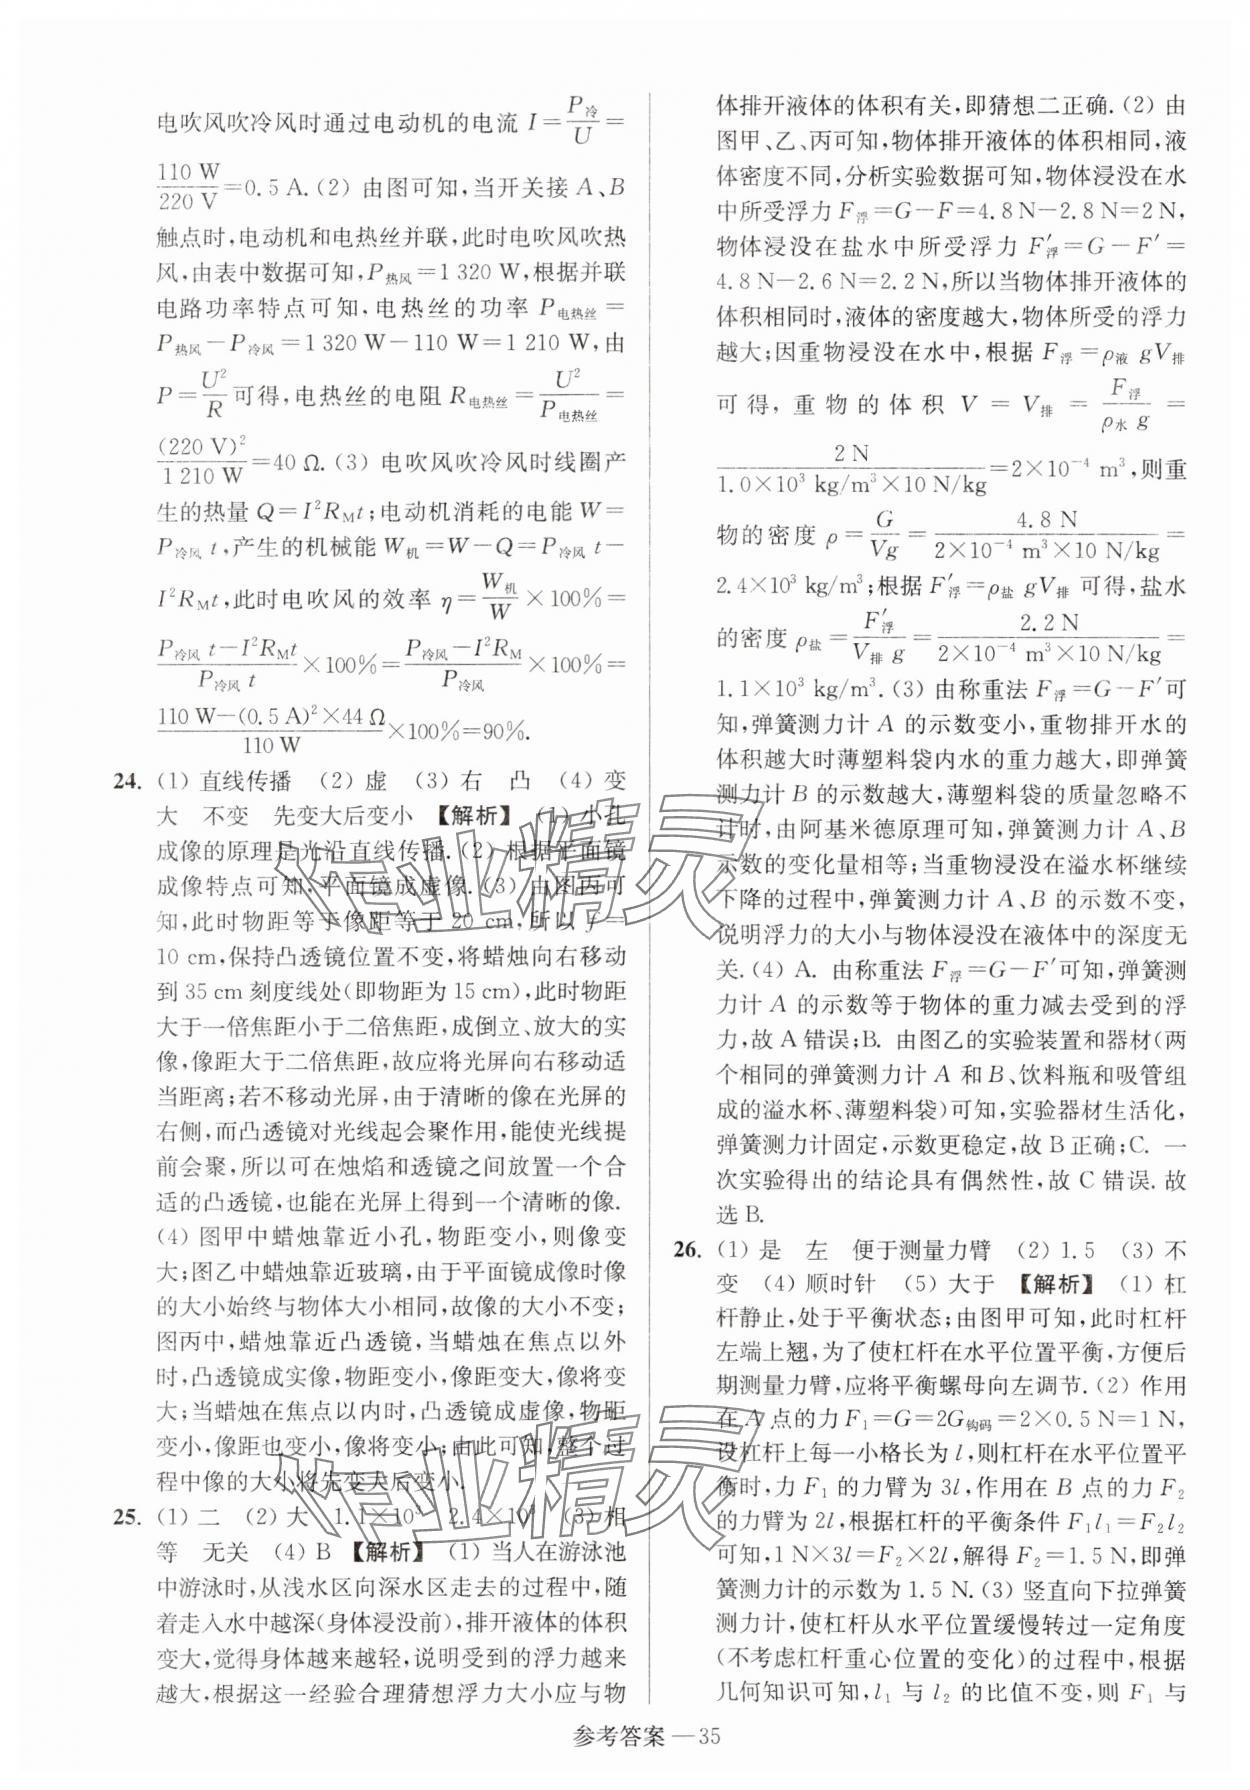 电吹风吹冷风时通过电动机的电流 I=P冷/U=
110 W/220 V=0.5 A.(2) 由图可知,当开关接 A、B
触点时,电动机和电热丝并联,此时电吹风吹热
风,由表中数据可知,P热风=1 320 W,根据并联
电路功率特点可知,电热丝的功率 P电热丝=
P热风-P冷风=1 320 W-110 W=1 210 W,由
P=U²/R可得,电热丝的电阻 R电热丝=U²/P电热丝=
(220 V)²/1 210 W=40 Ω.(3) 电吹风吹冷风时线圈产
生的热量 Q=I²R_M t;电动机消耗的电能 W=
P冷风 t,产生的机械能 W机=W-Q=P冷风 t-
I²R_M t,此时电吹风的效率 η=W机/W×100%=
(P冷风 t-I²R_M t)/(P冷风 t)×100%=(P冷风-I²R_M)/P冷风×100%=
(110 W-(0.5 A)²×44 Ω)/110 W×100%=90%.
24. (1) 直线传播 (2) 虚 (3) 右 凸 (4) 变
大 不变 先变大后变小 【解析】 (1) 小孔
成像的原理是光沿直线传播.(2) 根据平面镜
成像特点可知,平面镜成虚像.(3) 由图丙可
知,此时物距等于像距等于 20 cm,所以 f=
10 cm,保持凸透镜位置不变,将蜡烛向右移动
到 35 cm 刻度线处(即物距为 15 cm),此时物距
大于一倍焦距小于二倍焦距,成倒立、放大的实
像,像距大于二倍焦距,故应将光屏向右移动适
当距离;若不移动光屏,由于清晰的像在光屏的
右侧,而凸透镜对光线起会聚作用,能使光线提
前会聚,所以可在烛焰和透镜之间放置一个合
适的凸透镜,也能在光屏上得到一个清晰的像.
(4) 图甲中蜡烛靠近小孔,物距变小,则像变
大;图乙中蜡烛靠近玻璃,由于平面镜成像时像
的大小始终与物体大小相同,故像的大小不变;
图丙中,蜡烛靠近凸透镜,当蜡烛在焦点以外
时,凸透镜成实像,物距变小,像距变大,像变
大;当蜡烛在焦点以内时,凸透镜成虚像,物距
变小,像距也变小,像将变小;由此可知,整个过
程中像的大小将先变大后变小.
25. (1) 二 (2) 大 1.1×10³ 2.4×10³ (3) 相
等 无关 (4) B 【解析】 (1) 当人在游泳池
中游泳时,从浅水区向深水区走去的过程中,随
着走入水中越深(身体浸没前),排开液体的体积
变大,觉得身体越来越轻,说明受到的浮力越来
越大,根据这一经验合理猜想浮力大小应与物
体排开液体的体积有关,即猜想二正确.(2) 由
图甲、乙、丙可知,物体排开液体的体积相同,液
体密度不同,分析实验数据可知,物体浸没在水
中所受浮力 F浮=G-F=4.8 N-2.8 N=2 N,
物体浸没在盐水中所受浮力 F′浮=G-F′=
4.8 N-2.6 N=2.2 N,所以当物体排开液体的
体积相同时,液体的密度越大,物体所受的浮力
越大;因重物浸没在水中,根据 F浮=ρ液 gV排
可得,重物的体积 V=V排=F浮/(ρ水 g)=
2 N/(1.0×10³ kg/m³×10 N/kg)=2×10⁻⁴ m³,则重
物的密度 ρ=G/(Vg)=4.8 N/(2×10⁻⁴ m³×10 N/kg)=
2.4×10³ kg/m³;根据 F′浮=ρ盐 gV排 可得,盐水
的密度 ρ盐=F′浮/(V排 g)=2.2 N/(2×10⁻⁴ m³×10 N/kg)=
1.1×10³ kg/m³.(3) 由称重法 F浮=G-F′可
知,弹簧测力计 A 的示数变小,重物排开水的
体积越大时薄塑料袋内水的重力越大,即弹簧
测力计 B 的示数越大,薄塑料袋的质量忽略不
计时,由阿基米德原理可知,弹簧测力计 A、B
示数的变化量相等;当重物浸没在溢水杯继续
下降的过程中,弹簧测力计 A、B 的示数不变,
说明浮力的大小与物体浸没在液体中的深度无
关.(4) A. 由称重法 F浮=G-F′可知,弹簧测
力计 A 的示数等于物体的重力减去受到的浮
力,故 A 错误;B. 由图乙的实验装置和器材(两
个相同的弹簧测力计 A 和 B、饮料瓶和吸管组
成的溢水杯、薄塑料袋)可知,实验器材生活化,
弹簧测力计固定,示数更稳定,故 B 正确;C. 一
次实验得出的结论具有偶然性,故 C 错误. 故
选 B.
26. (1) 是 左 便于测量力臂 (2) 1.5 (3) 不
变 (4) 顺时针 (5) 大于 【解析】 (1) 杠
杆静止,处于平衡状态;由图甲可知,此时杠杆
左端上翘,为了使杠杆在水平位置平衡,方便后
期测量力臂,应将平衡螺母向左调节.(2) 作用
在 A 点的力 F₁=G=2G钩码=2×0.5 N=1 N,
设杠杆上每一小格长为 l,则杠杆在水平位置平
衡时,力 F₁ 的力臂为 3l,作用在 B 点的力 F₂
的力臂为 2l,根据杠杆的平衡条件 F₁l₁=F₂l₂
可知,1 N×3l=F₂×2l,解得 F₂=1.5 N,即弹
簧测力计的示数为 1.5 N.(3) 竖直向下拉弹簧
测力计,使杠杆从水平位置缓慢转过一定角度
(不考虑杠杆重心位置的变化)的过程中,根据
几何知识可知,l₁ 与 l₂ 的比值不变,则 F₁ 与
参考答案 —35
作业精灵
作业精灵